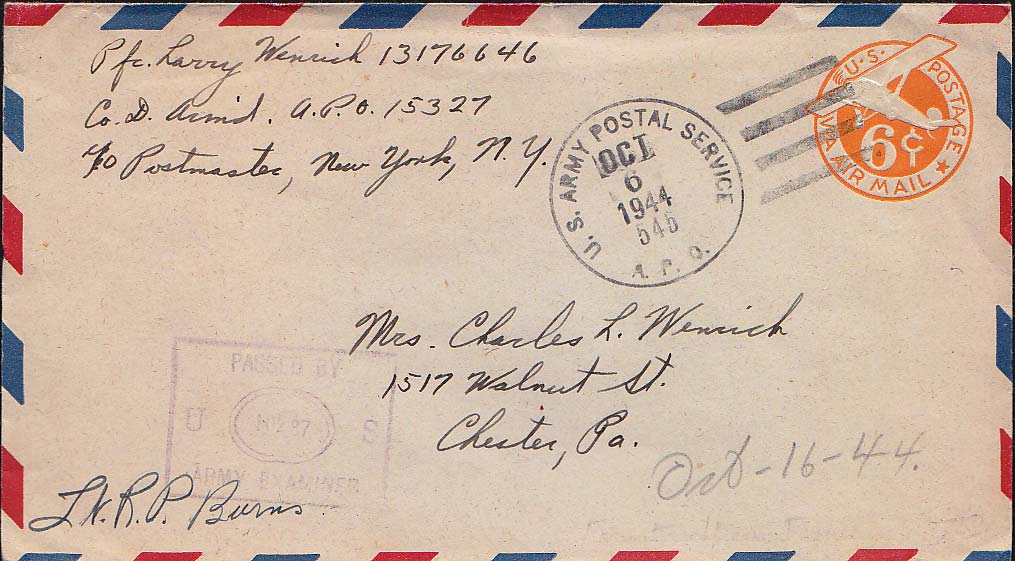 Pfc. Larry Wenrich 13176646
Co. D. Armd. A.P.O. 15327
c/o Postmaster, New York, N.Y.
U.S. ARMY POSTAL SERVICE
OCT
6
1944
545
A.P.O.
U.S. POSTAGE
6¢
VIA AIR MAIL
Mrs. Charles L. Wenrich
1517 Walnut St.
Chester, Pa.
PASSED BY
U S
ARMY EXAMINER
Oct-16-44.
R.P. Burns